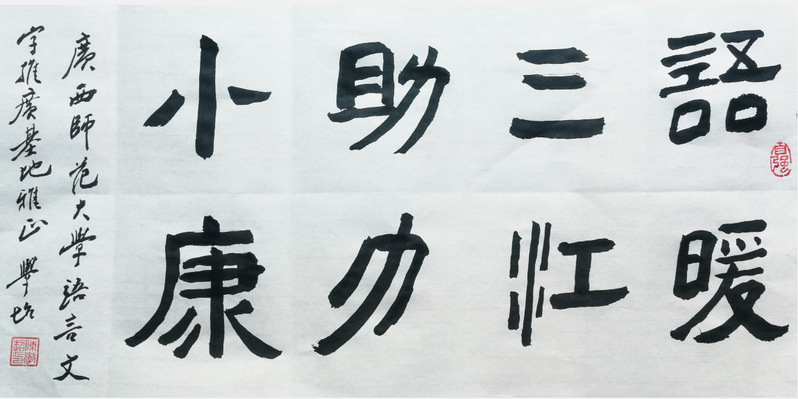 語暖
三江
助力
小康
廣西師范大學語言文
字推廣基地雅正 學
自強